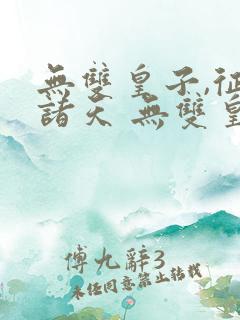 無雙皇子,征
諸天 無雙皇
傅九辭3
未经同意禁止转载